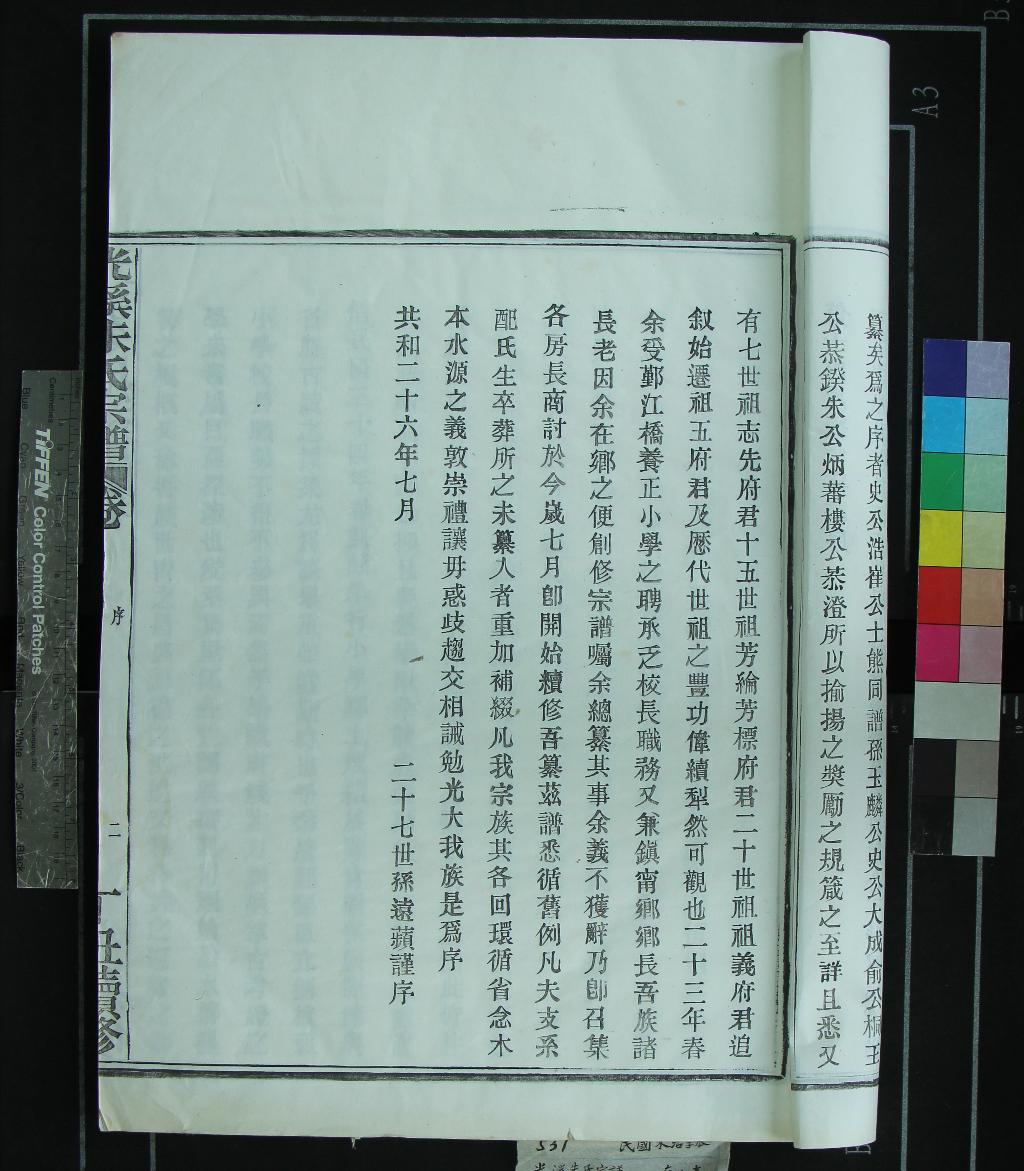 纂矣爲之序者史公浩崔公士熊同譜孫玉麟公史公大成俞公桐玉
公恭鍨朱公炳蕃樓公恭澄所以揄揚之獎勵之規箴之至詳且悉又
有七世祖志先府君十五世祖芳綸芳標府君二十世祖祖義府君追
叙始遷祖五府君及歷代世祖之豐功偉績犁然可觀也二十三年春
余受鄞江橋養正小學之聘承乏校長職務又兼鎭甯鄉鄉長吾族諸
長老因余在鄉之便創修宗譜囑余總纂其事余義不獲辭乃卽召集
各房長商討於今歲七月卽開始續修吾纂茲譜悉循舊例凡夫支系
配氏生卒葬所之未纂入者重加補綴凡我宗族其各回環循省念木
本水源之義敦崇禮讓毋惑歧趨交相誡勉光大我族是爲序
共和二十六年七月 二十七世孫遠蘋謹序
光溪朱氏宗譜 卷 序 二 丁丑續修
A3
TIFFEN Color Control Patches
Centimetres
Blue
Cyan
Green
Yellow
Red
Magenta
White
3/Color
Black
531 民國木活字本
光溪朱氏宗譜